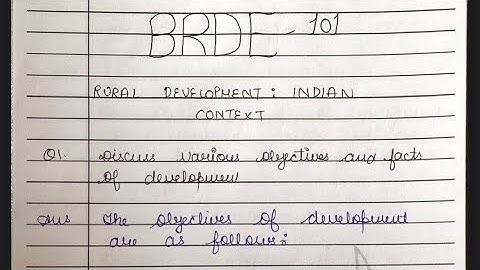 BRDE-101
RURAL DEVELOPMENT: INDIAN
CONTEXT
Q1. Discuss various objectives and facts
of development
Ans The objectives of development
are as follows: